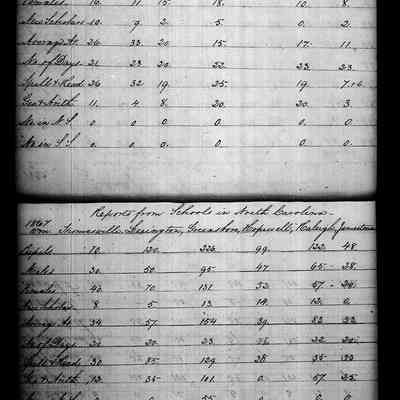 Females. 16. 11. 15. 18. 10. 8.
New Scholars 10. 9. 2. 5. 0. 2.
Average At. 26 33. 20. 15. 17. 11.
No of Days. 21 23 20. 22. 23. 23.
Spell & Read 26 32 19. 25. 19. 7.
Geo & Arith 11. 4 8. 20. 20. 3.
No in N. S. 0. 0. 0. 0. 0. 0.
No in S. S. 0. 0. 0. 0. 0. 0.
Reports from Schools in North Carolina.
1867 Thomasville, Lexington, Greensboro, Hopewell, Raleigh, Jamestown
Pupils 70. 120. 226. 99. 132. 48
Males 30. 50 95 47 65 28.
Females 40. 70 131. 52. 67
New Scholars 8 5 13. 0.
Average At. 34 57. 154 39. 82
No of Days 20 23
Spell & Read 30 85 129.
Geo & Arith 13. 35 101. 0. 57. 25.